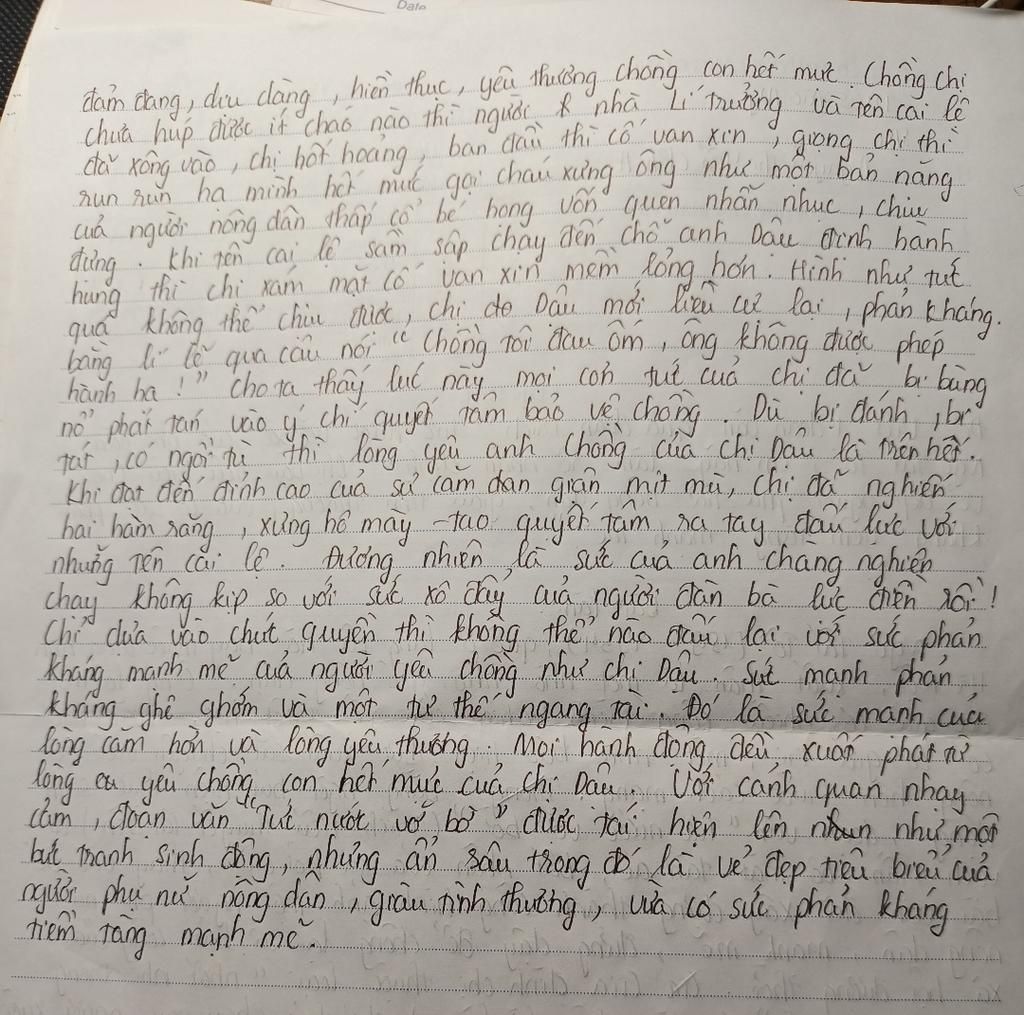 Date
đảm đang, dịu dàng, hiền thục, yêu thương chồng con hết mực. Chồng chị
chưa húp được ít cháo nào thì người nhà Lí trưởng và tên cai lệ
đã xông vào, chị hốt hoảng, ban đầu thì cố van xin, giọng chị thì
run run hạ mình hết mức gọi cháu xưng ông như một bản năng
của người nông dân thấp cổ bé họng vốn quen nhẫn nhục, chịu
đựng. Khi tên cai lệ sầm sập chạy đến chỗ anh Dậu định hành
hung thì chị xám mặt cố van xin mềm lỏng hơn. Hình như tức
quá không thể chịu được, chị Dậu mới liều cự lại, phản kháng.
bằng lí lẽ qua câu nói "Chồng tôi đau ốm, ông không được phép
hành hạ!" cho ta thấy lúc này mọi cơn tức của chị đã bị bùng
nổ phát tán vào ý chí quyết tâm bảo vệ chồng. Dù bị đánh, bị
tát, có ngồi tù thì lòng yêu anh chồng của chị Dậu là trên hết.
Khi đạt đến đỉnh cao của sự căm đan giận mịt mù, chị đã nghiến
hai hàm răng, xưng hô mày - tao quyết tâm ra tay đấu lực với
những tên cai lệ. Đương nhiên là sức của anh chàng nghiện
chạy không kịp so với sức xô đẩy của người đàn bà lực điền rồi!
Chỉ dựa vào chút quyền thì không thể nào đấu lại với sức phản
kháng mạnh mẽ của người yêu chồng như chị Dậu. Sức mạnh phản
kháng ghê ghớm và một tư thế ngang tài. Đó là sức mạnh của
lòng căm hờn và lòng yêu thương. Mọi hành động đều xuất phát từ
lòng yêu chồng con hết mực của chị Dậu. Với cánh quan nhạy
cảm, đoạn văn "Tức nước vỡ bờ" được tái hiện lên như một
bức tranh sinh động, nhưng ẩn sâu trong đó là vẻ đẹp tiêu biểu của
người phụ nữ nông dân, giàu tình thương, vừa có sức phản kháng
tiềm tàng mạnh mẽ.